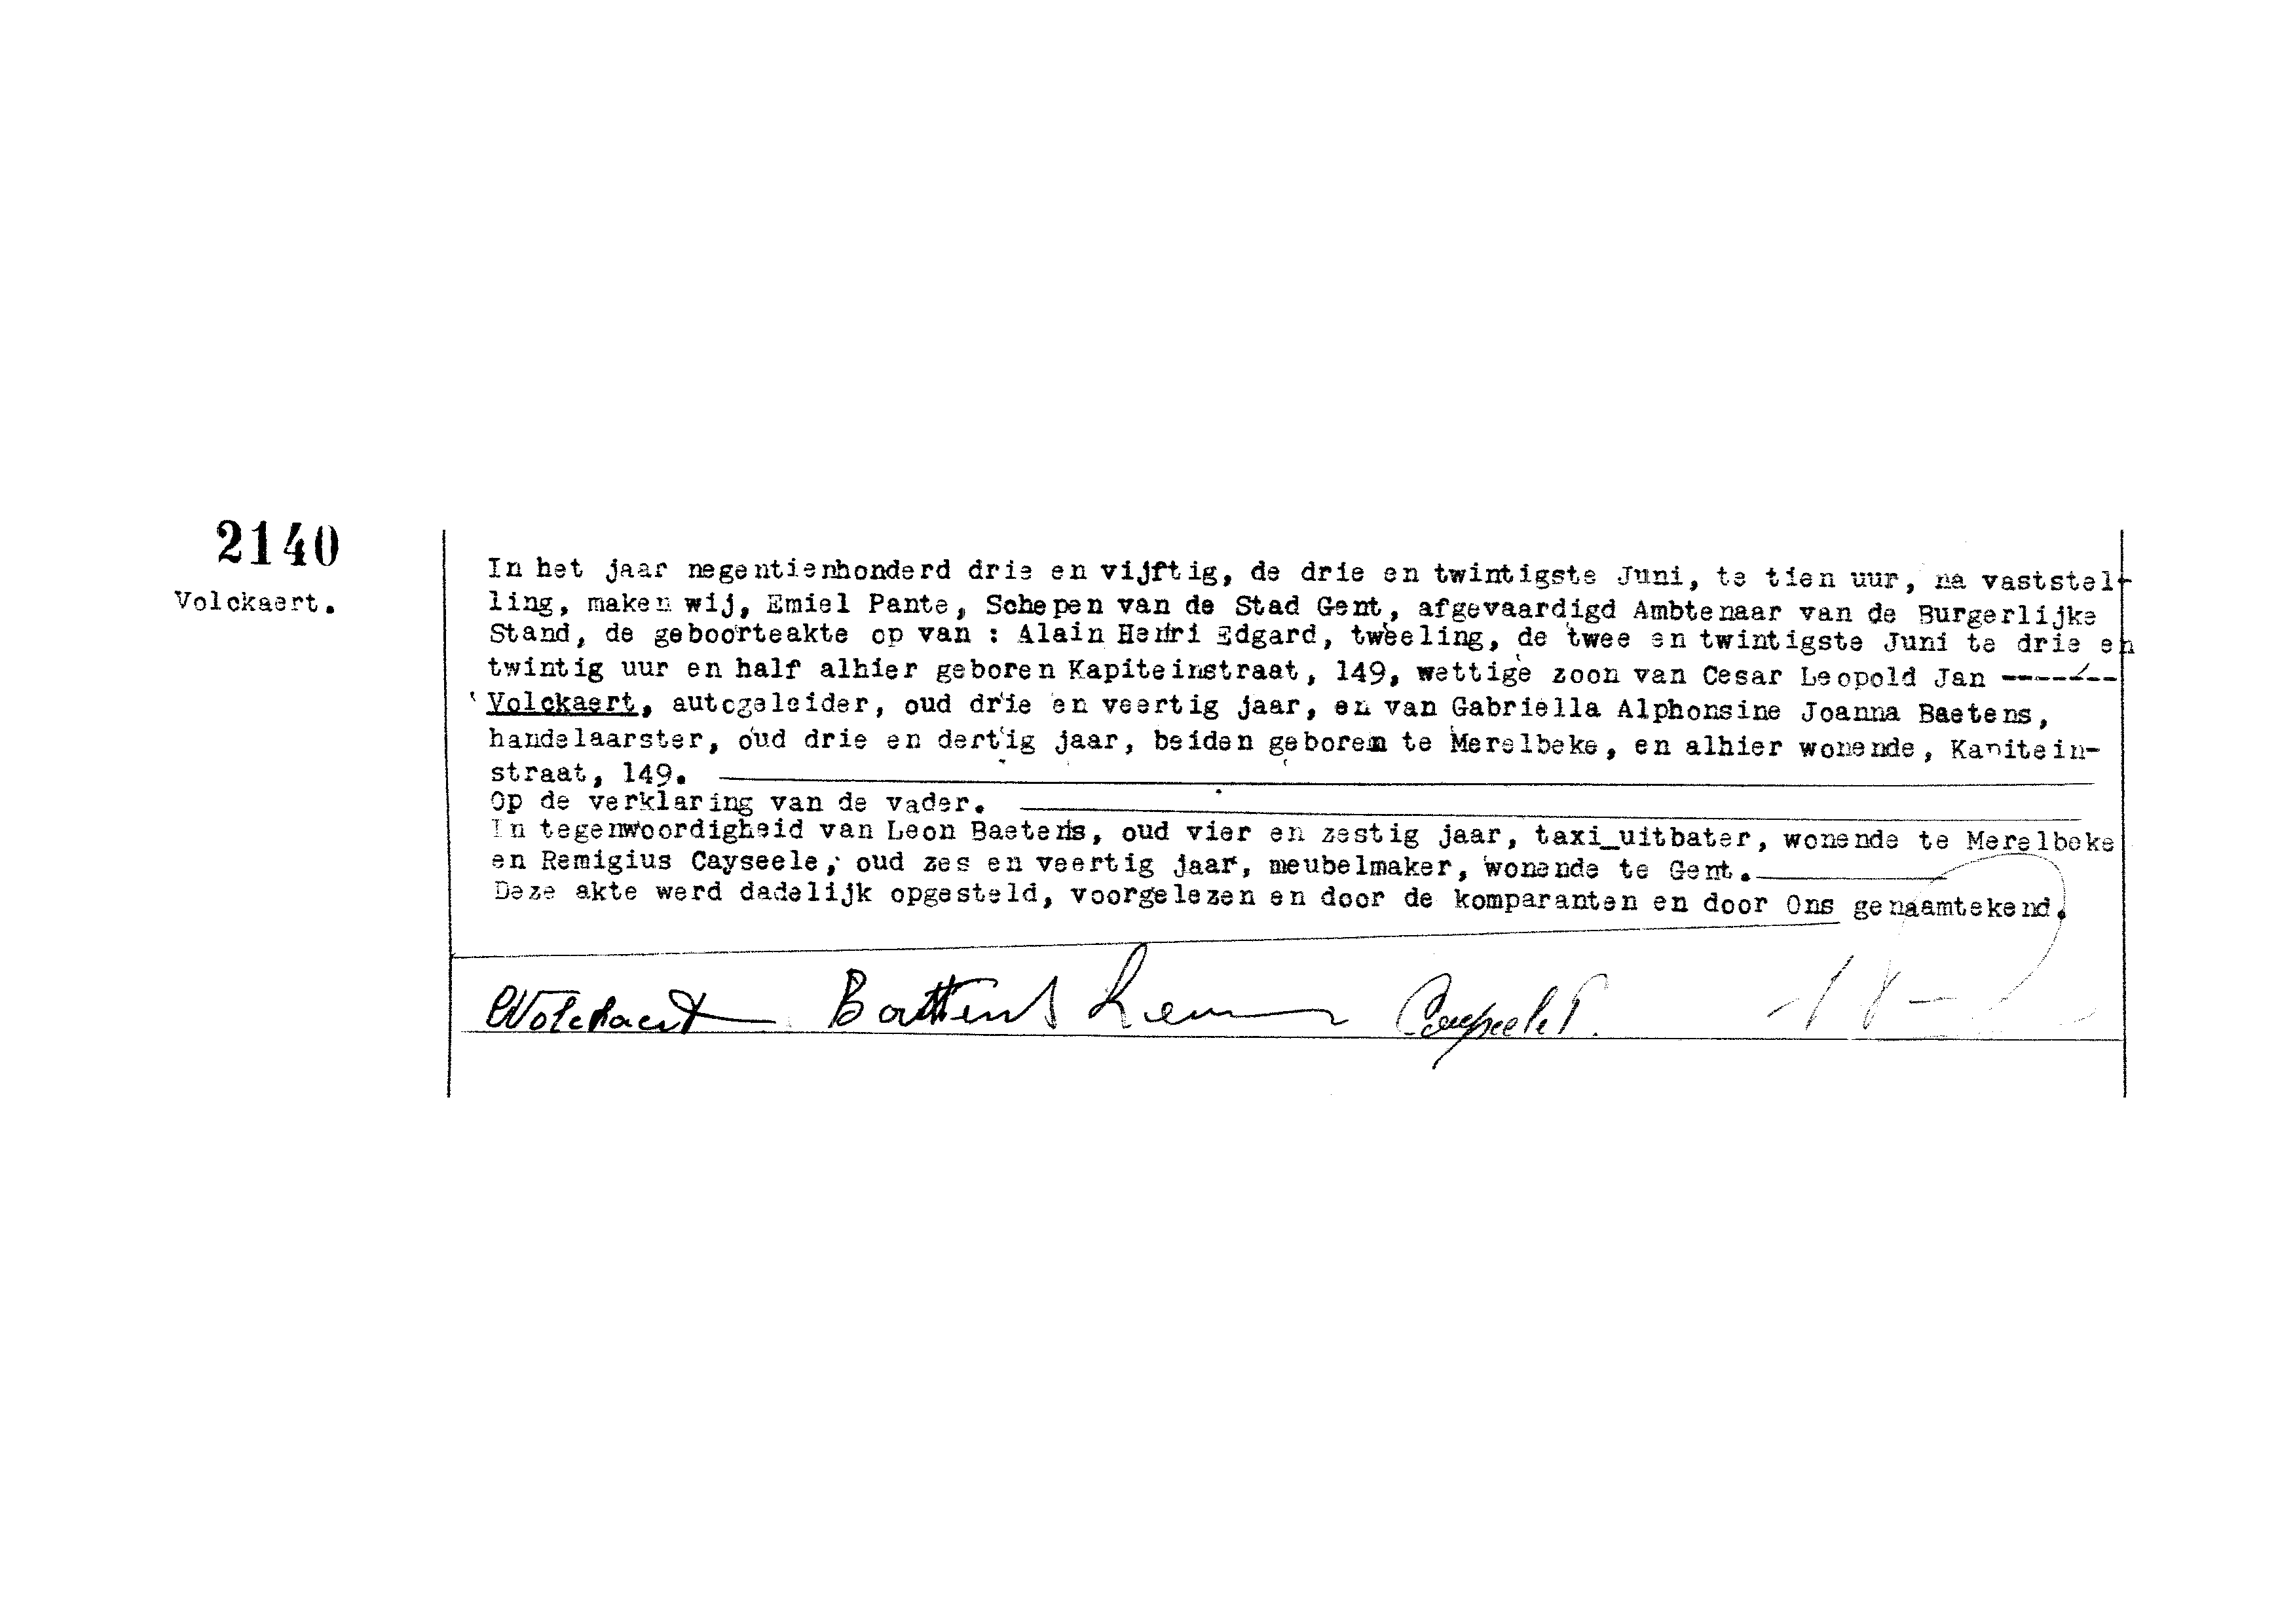 2140
Volckaert.
In het jaar negentienhonderd drie en vijftig, de drie en twintigste Juni, te tien uur, na vaststel-
ling, maken wij, Emiel Pante, Schepen van de Stad Gent, afgevaardigd Ambtenaar van de Burgerlijke
Stand, de geboorteakte op van : Alain Henri Edgard, tweeling, de twee en twintigste Juni te drie en
twintig uur en half alhier geboren Kapiteinstraat, 149, wettige zoon van Cesar Leopold Jan -------
Volckaert, autogeleider, oud drie en veertig jaar, en van Gabriella Alphonsine Joanna Baetens,
handelaarster, oud drie en dertig jaar, beiden geboren te Merelbeke, en alhier wonende, Kapitein-
straat, 149.
Op de verklaring van de vader.
In tegenwoordigheid van Leon Baetens, oud vier en zestig jaar, taxi_uitbater, wonende te Merelbeke
en Remigius Cayseele, oud zes en veertig jaar, meubelmaker, wonende te Gent.
Deze akte werd dadelijk opgesteld, voorgelezen en door de komparanten en door Ons genaamtekend.
Volckaert